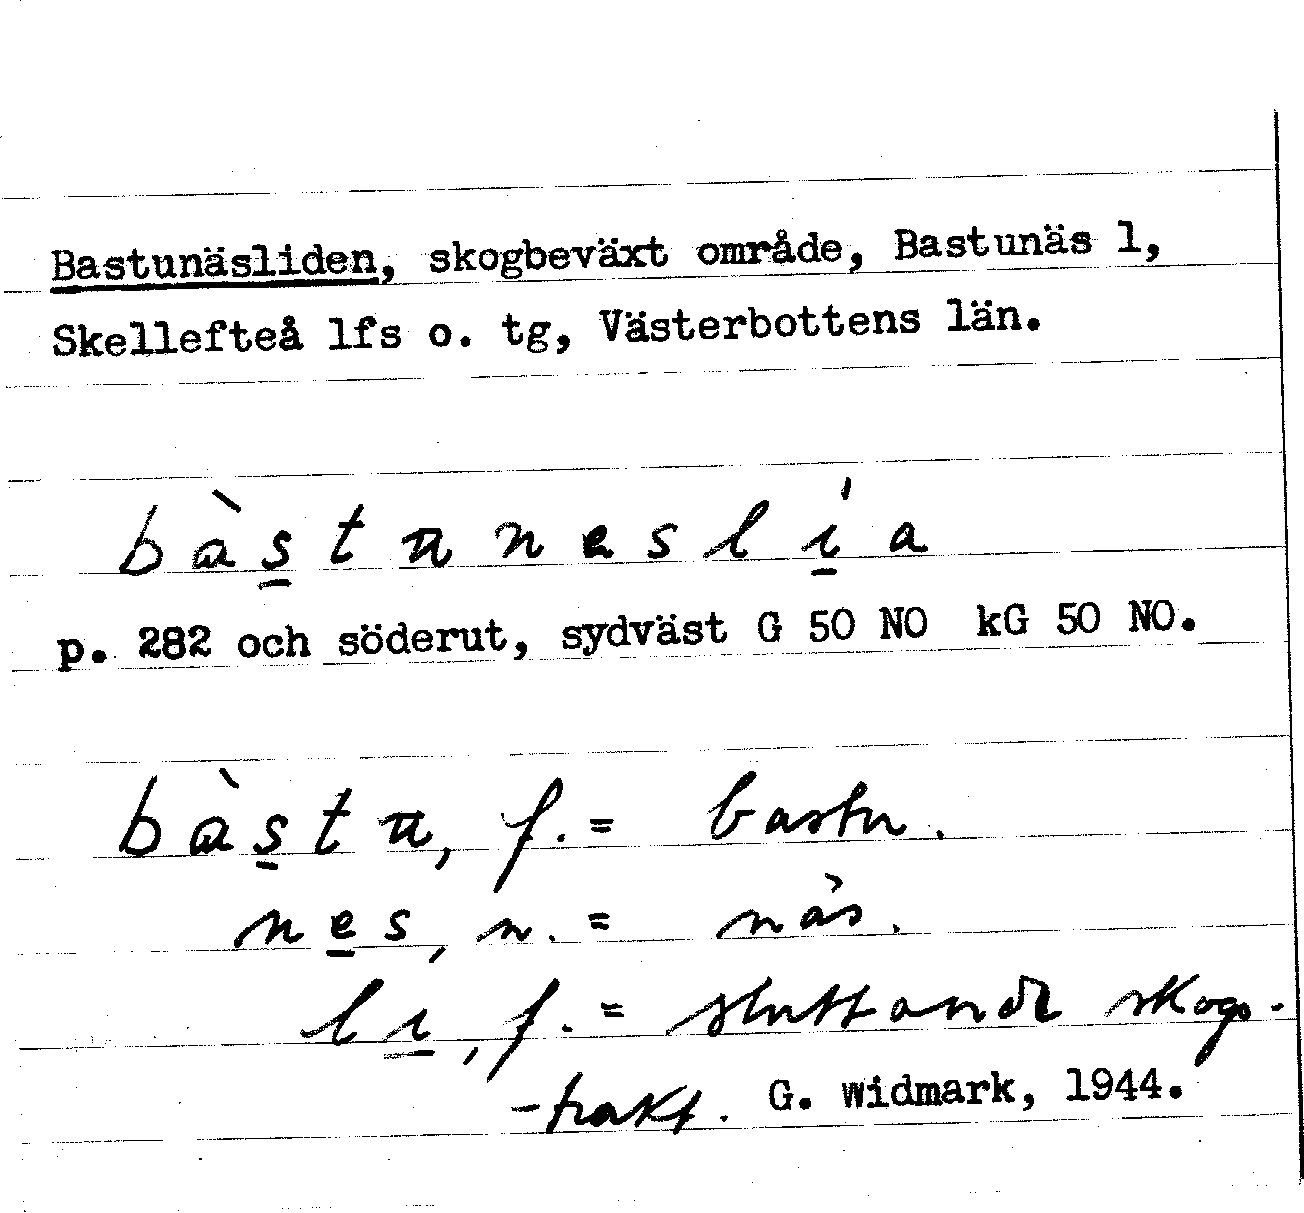 Bastunäsliden, skogbeväxt område, Bastunäs l,
Skellefteå lfs o. tg, Västerbottens län.
bàstuneslí̱a
p. 282 och söderut, sydväst G 50 NO kG 50 NO.
bàs̱tu, f. = bastu.
ne̱s, n. = näs.
li̱, f. = sluttande skogs-
-trakt. G. Widmark, 1944.